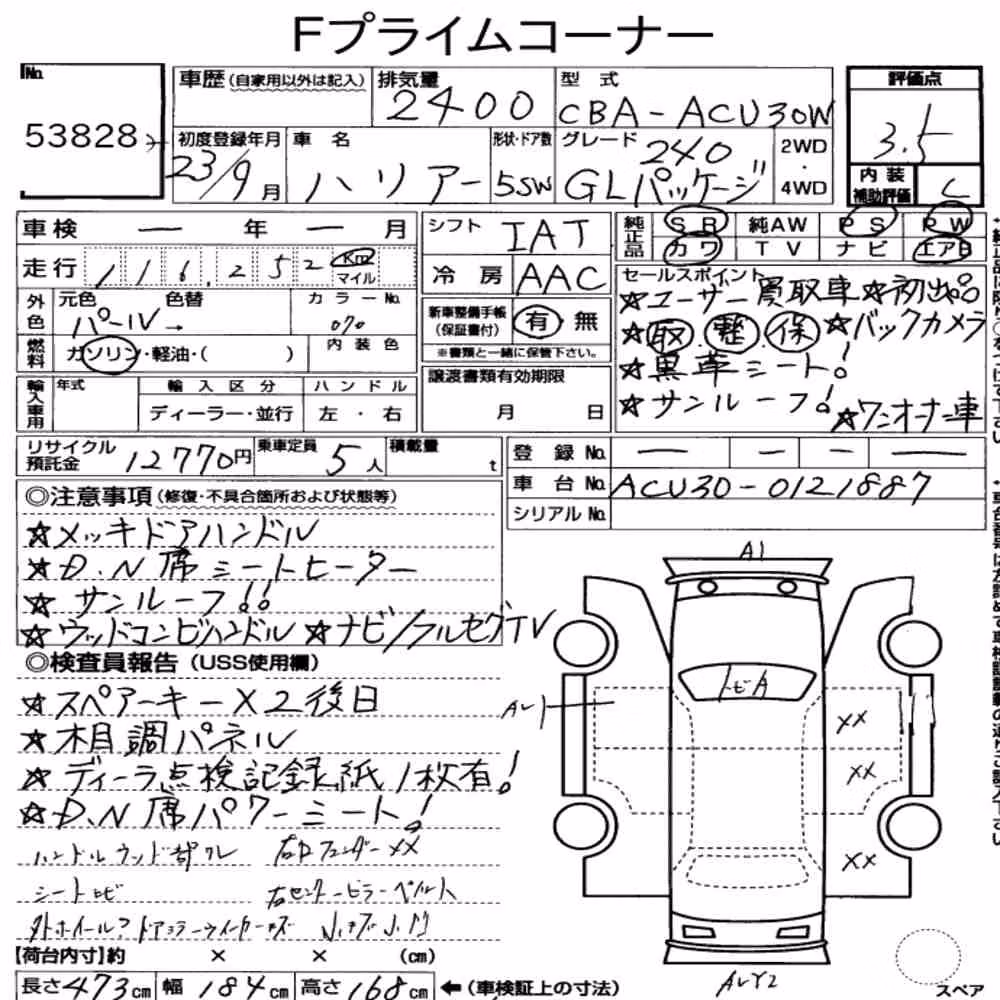 Fプライムコーナー
No. 53828
車歴(自家用以外は記入) 排気量 2400 型式 CBA-ACU30W
初度登録年月 23/9月 車名 ハリアー 形状・ドア数 5SW グレード 240 GLパッケージ 2WD・4WD
評価点 3.5
内装補助評価 C
車検 ー 年 ー 月
走行 116,252 Km マイル
外色 元色 パールV 色替 → カラーNo. 070
燃料 ガソリン・軽油・( ) 内装色
輸入車用 年式 輸入区分 ディーラー・並行 ハンドル 左・右
シフト IAT
冷房 AAC
新車整備手帳(保証書付) 有・無
※書類と一緒に保管下さい。
譲渡書類有効期限 月 日
純正品 SR 純AW PS PW
カワ TV ナビ エアB
セールスポイント
☆ユーザー買取車☆初出品
☆取 整 保 ☆バックカメラ
☆黒革シート!
☆サンルーフ! ☆ワンオーナー車
リサイクル預託金 12770円 乗車定員 5人 積載量 t
登録No. ー ー ー ー
車台No. ACU30-0121887
シリアルNo.
◎注意事項(修復・不具合箇所および状態等)
☆メッキドアハンドル
☆D.N席シートヒーター
☆サンルーフ!!
☆ウッドコンビハンドル ☆ナビ/フルセグTV
◎検査員報告(USS使用欄)
☆スペアーキー×2後日
☆木目調パネル
☆ディーラ点検記録紙1枚有!
☆D.N席パワーシート!
ハンドルウッド部ワレ 右Fフェンダー××
シートヨビ 右センターピラー
A1
トビA
××
××
××
【荷台内寸】約 × × (cm)
長さ473cm 幅184cm 高さ168cm ←(車検証上の寸法)
スペア